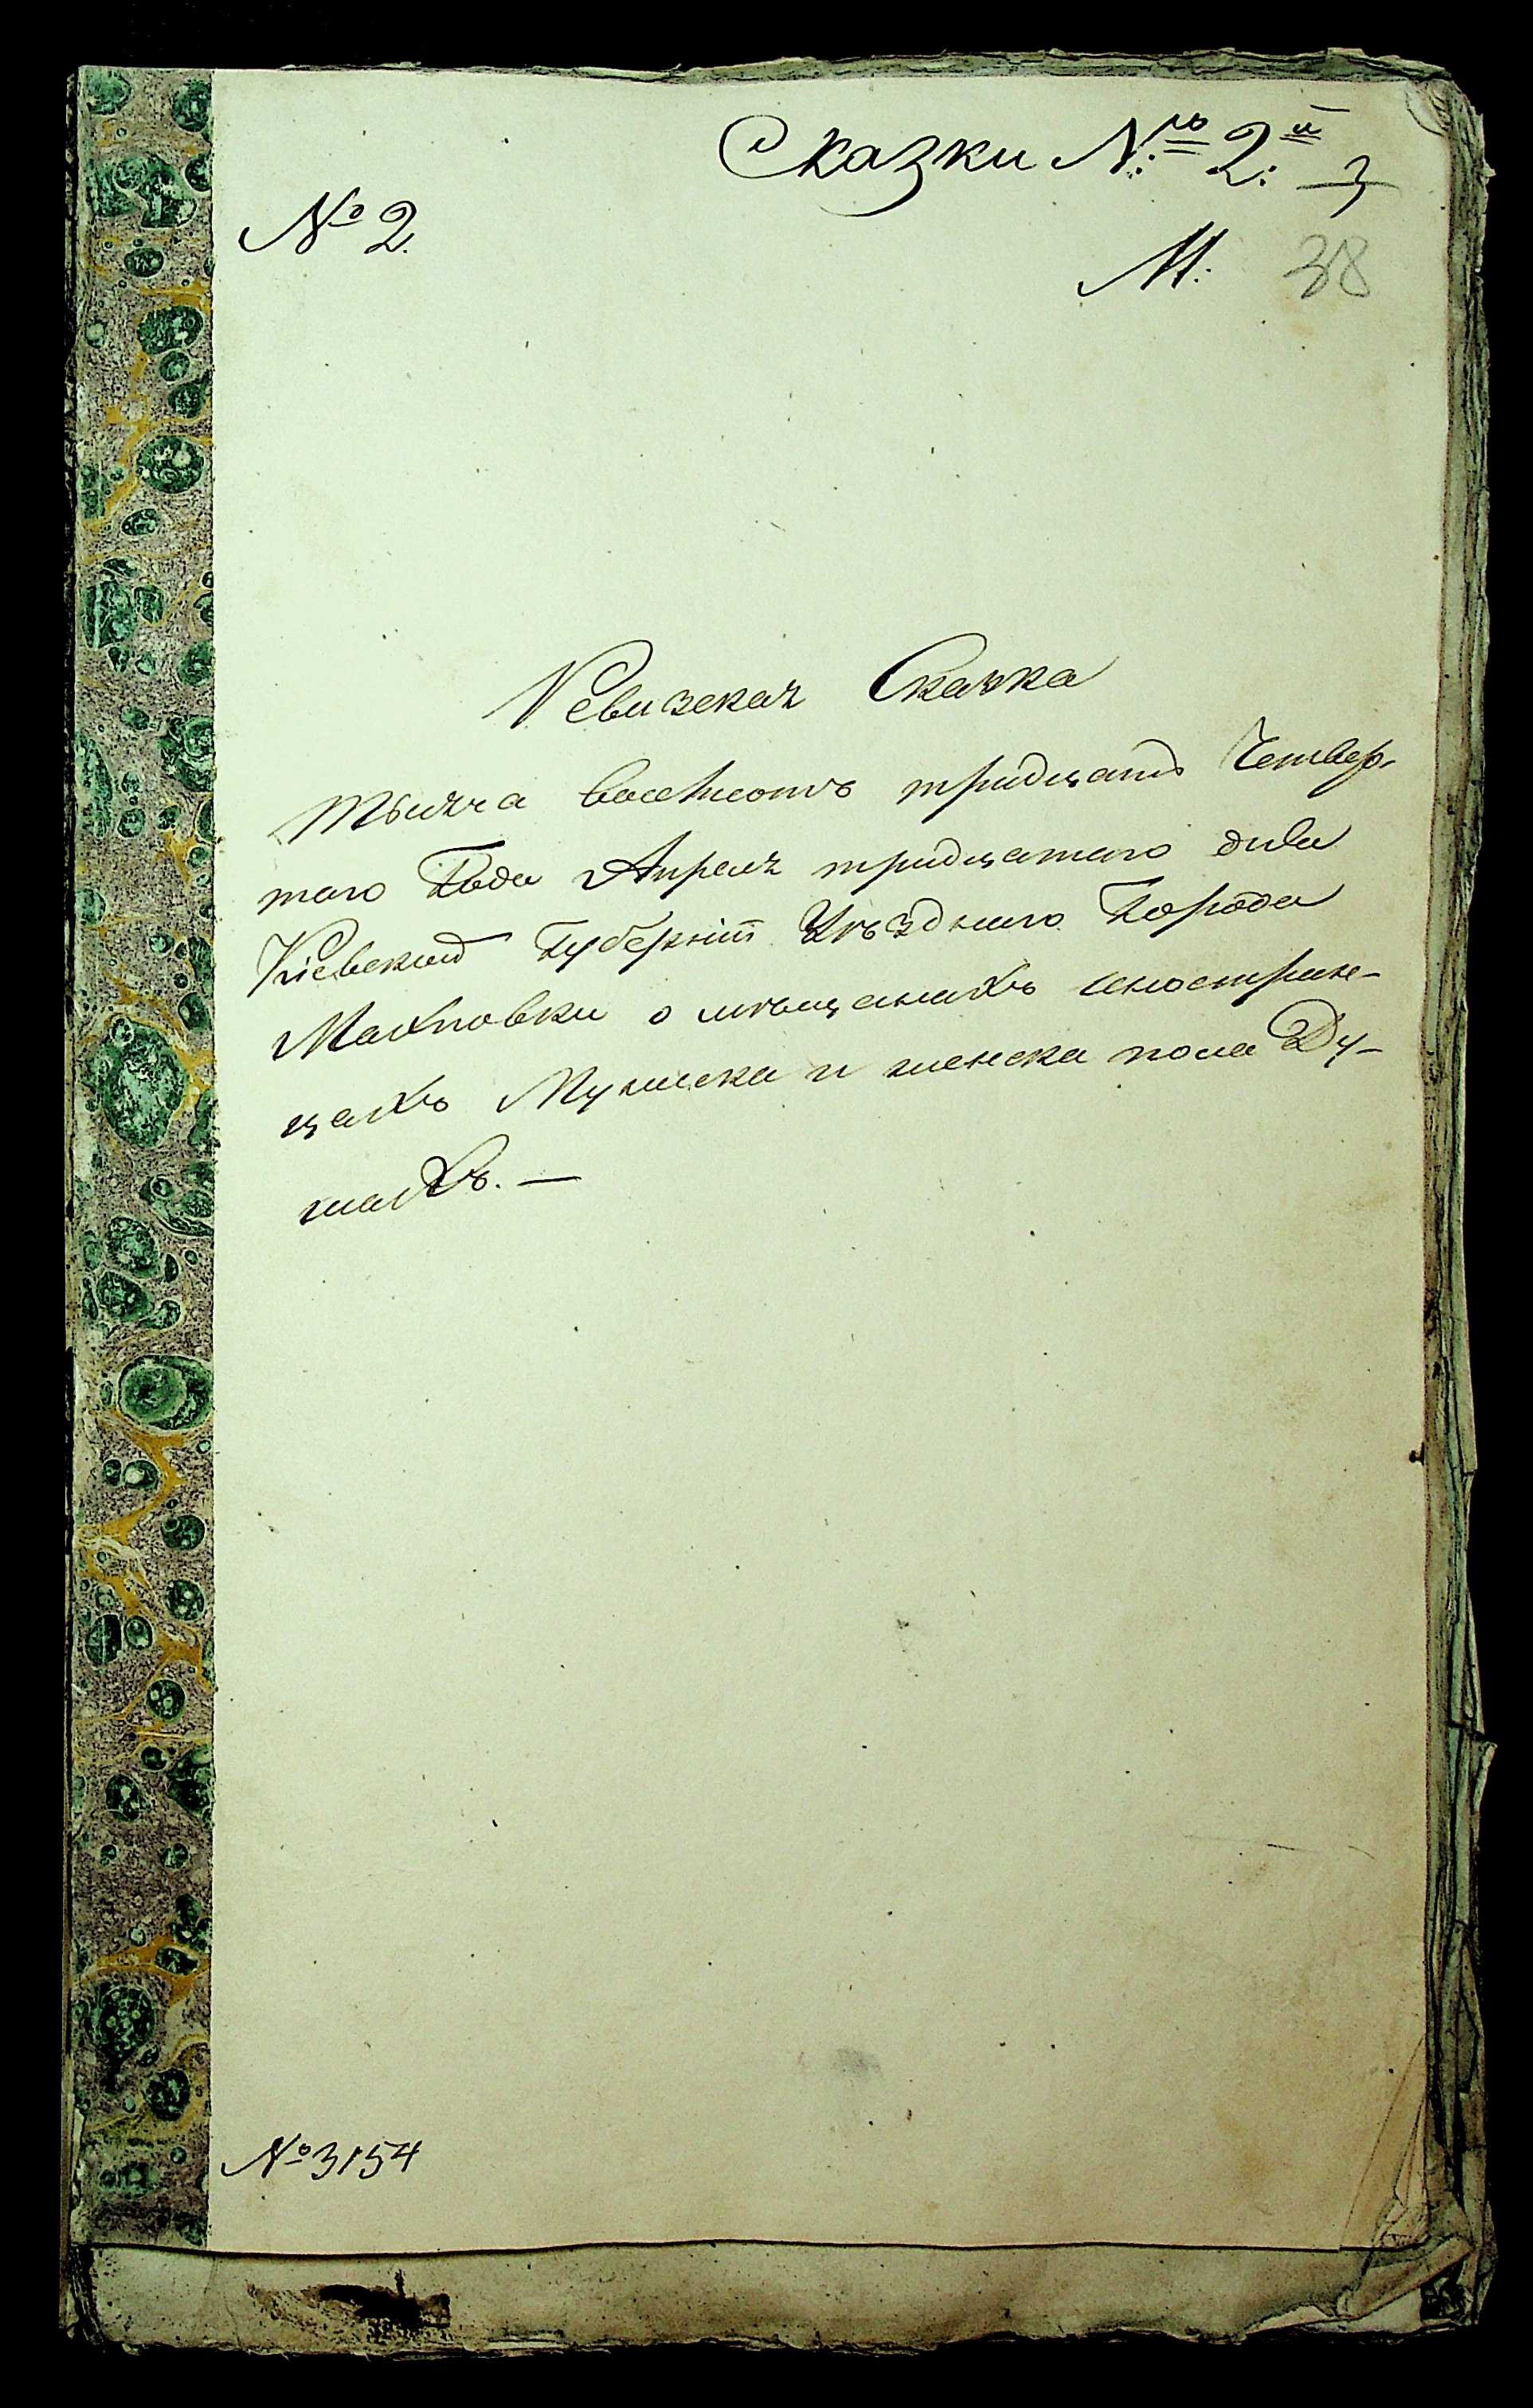 Сказки №: 2: й 3
№ 2.
М: 38
Ревизская Сказка
Тысяча восемсотъ тридцать Четвер-
таго Года Апреля тридцатаго дня
Кіевской Губерніи Уѣзднаго Города
Махновки о мѣщанахъ иностран-
цахъ Мужеска и женска пола Ду-
шахъ. —
№ 3154